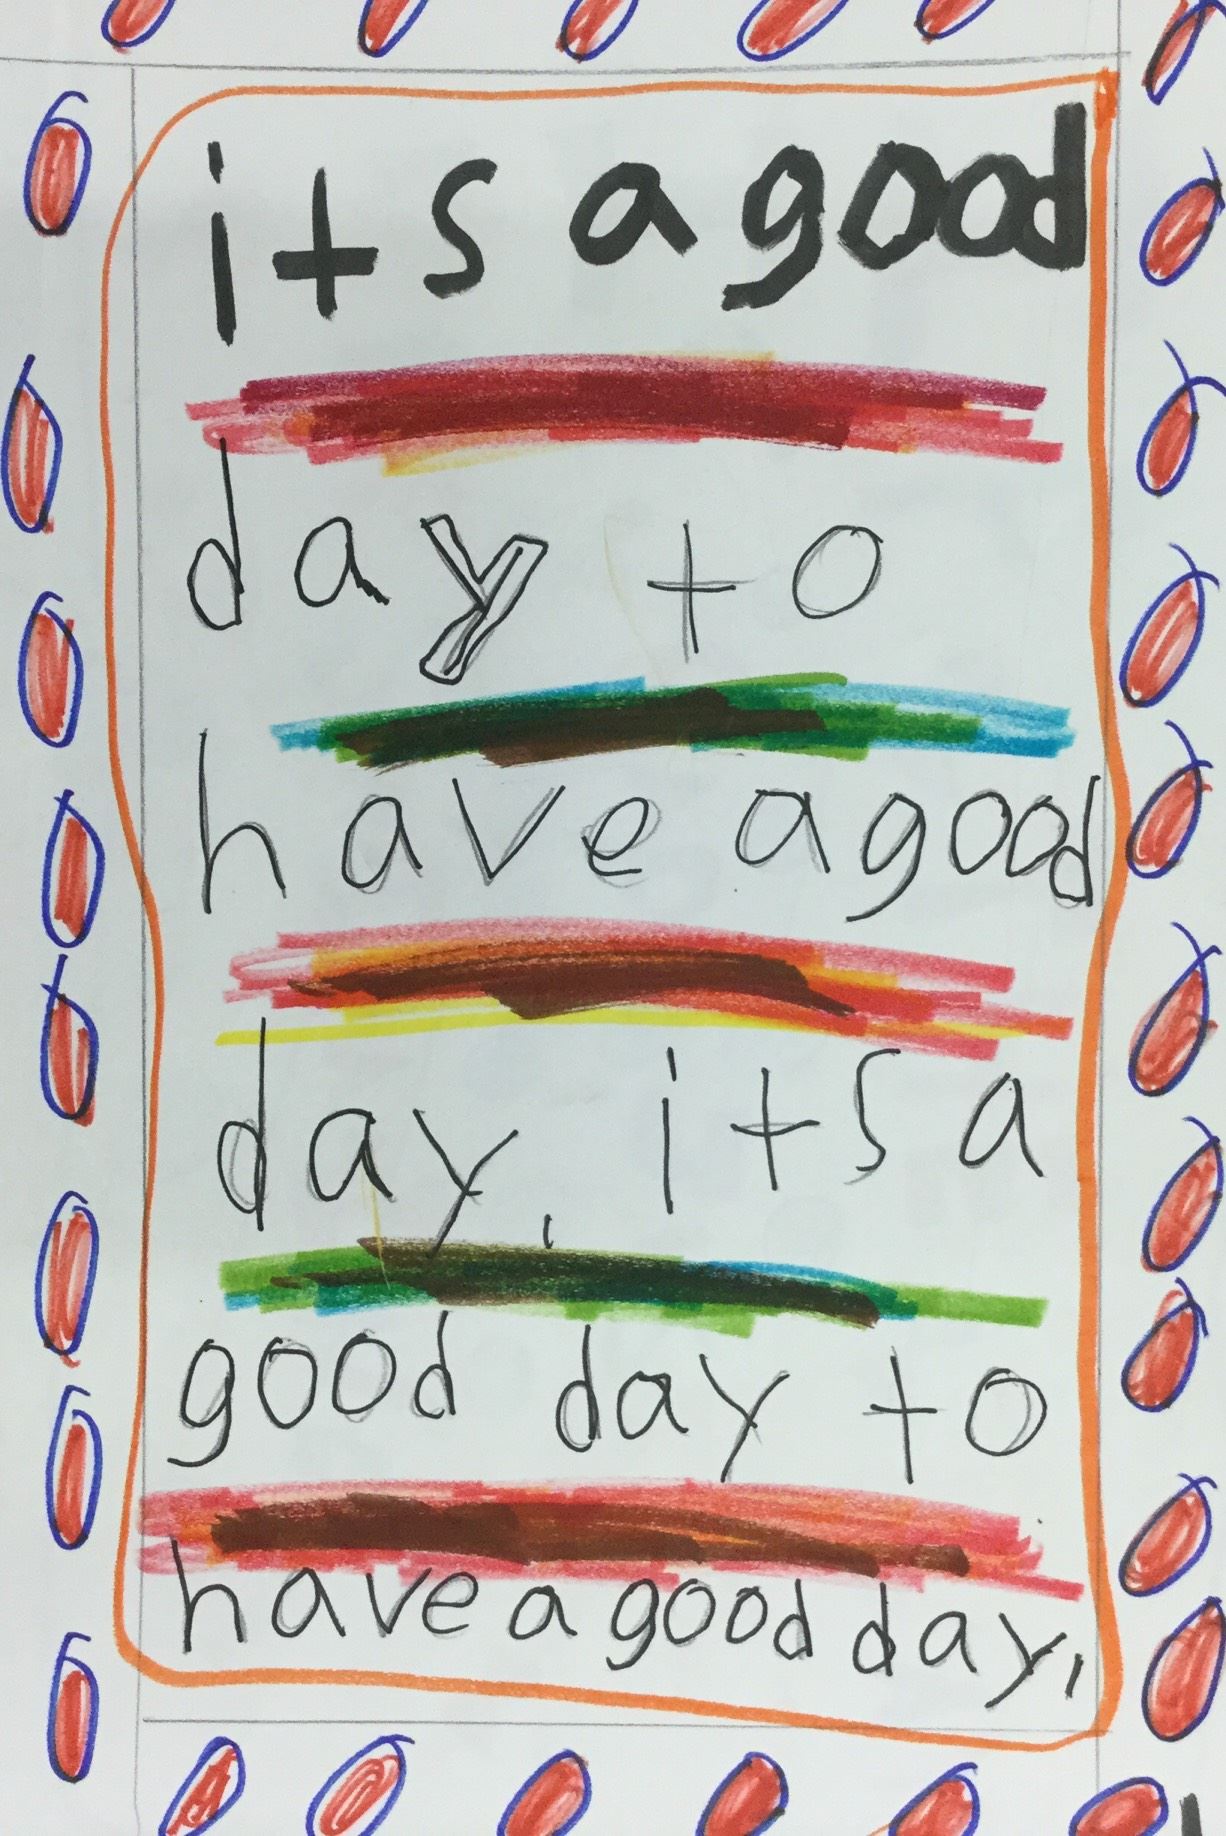 its a good
day to
have a good
day, its a
good day to
have a good day,